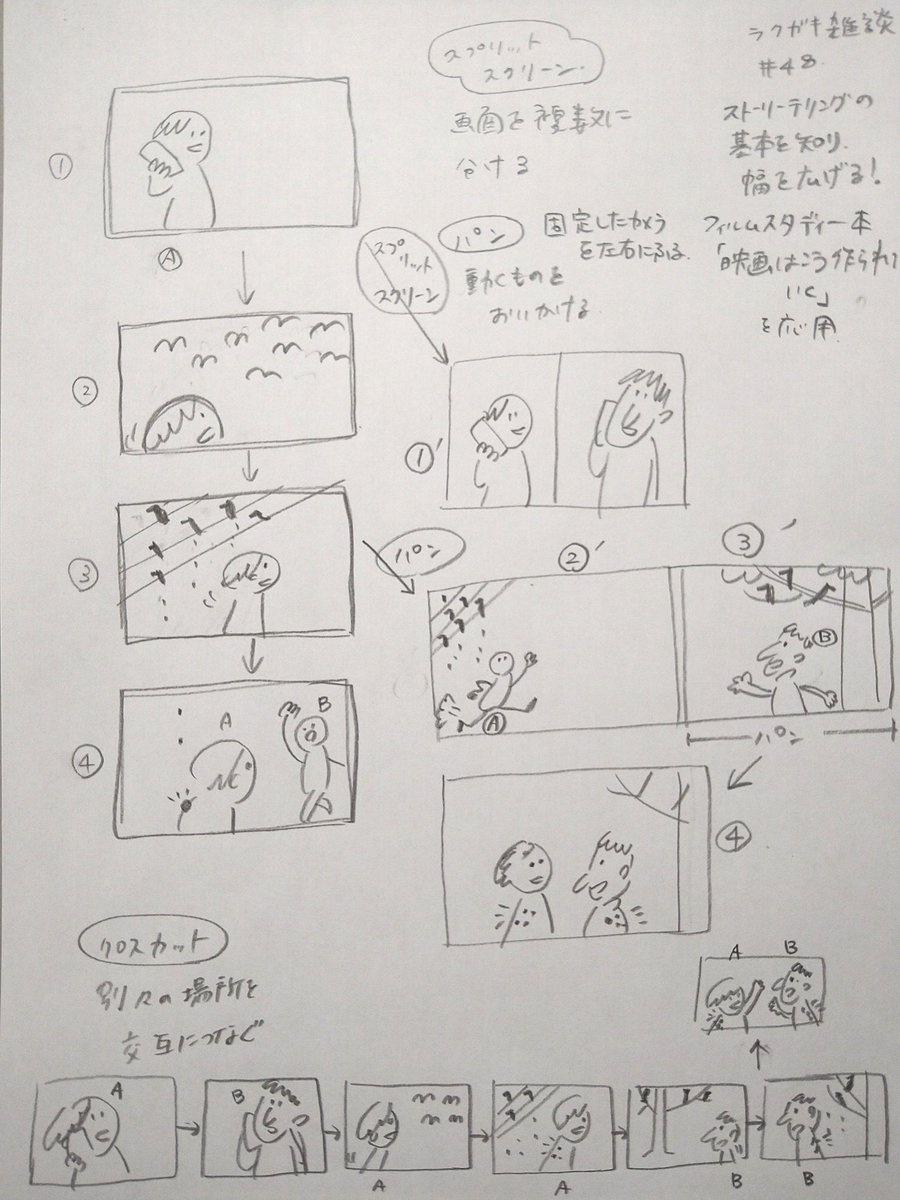 ラクガキ雑談
#48
ストーリーテリングの
基本を知り、
幅を広げる!
フィルムスタディー本
「映画はこう作られて
いく」
を応用
スプリット
スクリーン
画面を複数に
分ける
パン
固定したカメラ
を左右にふる
動くものを
おいかける
①
A
②
③
④
A
B
スプリット
スクリーン
①'
パン
②'
③'
A
B
パン
④
クロスカット
別々の場所を
交互につなぐ
A
B
A
B
A
A
B
B